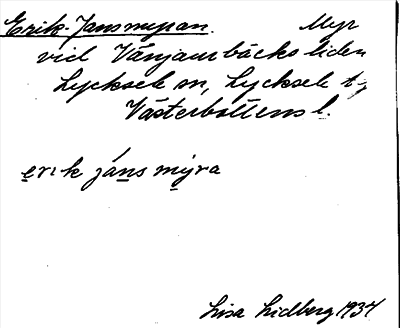 Erik-Jansmyran. Myr
vid Vänjaurbäcksliden
Lycksele sn, Lycksele t.,
Västerbottens l.
erik jáns mýra
Lisa Lidberg 1934